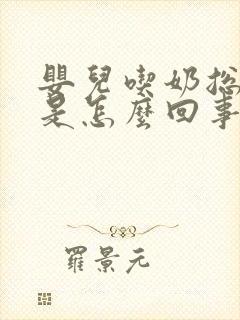 嬰兒喫奶總
是怎麼回事
羅景元